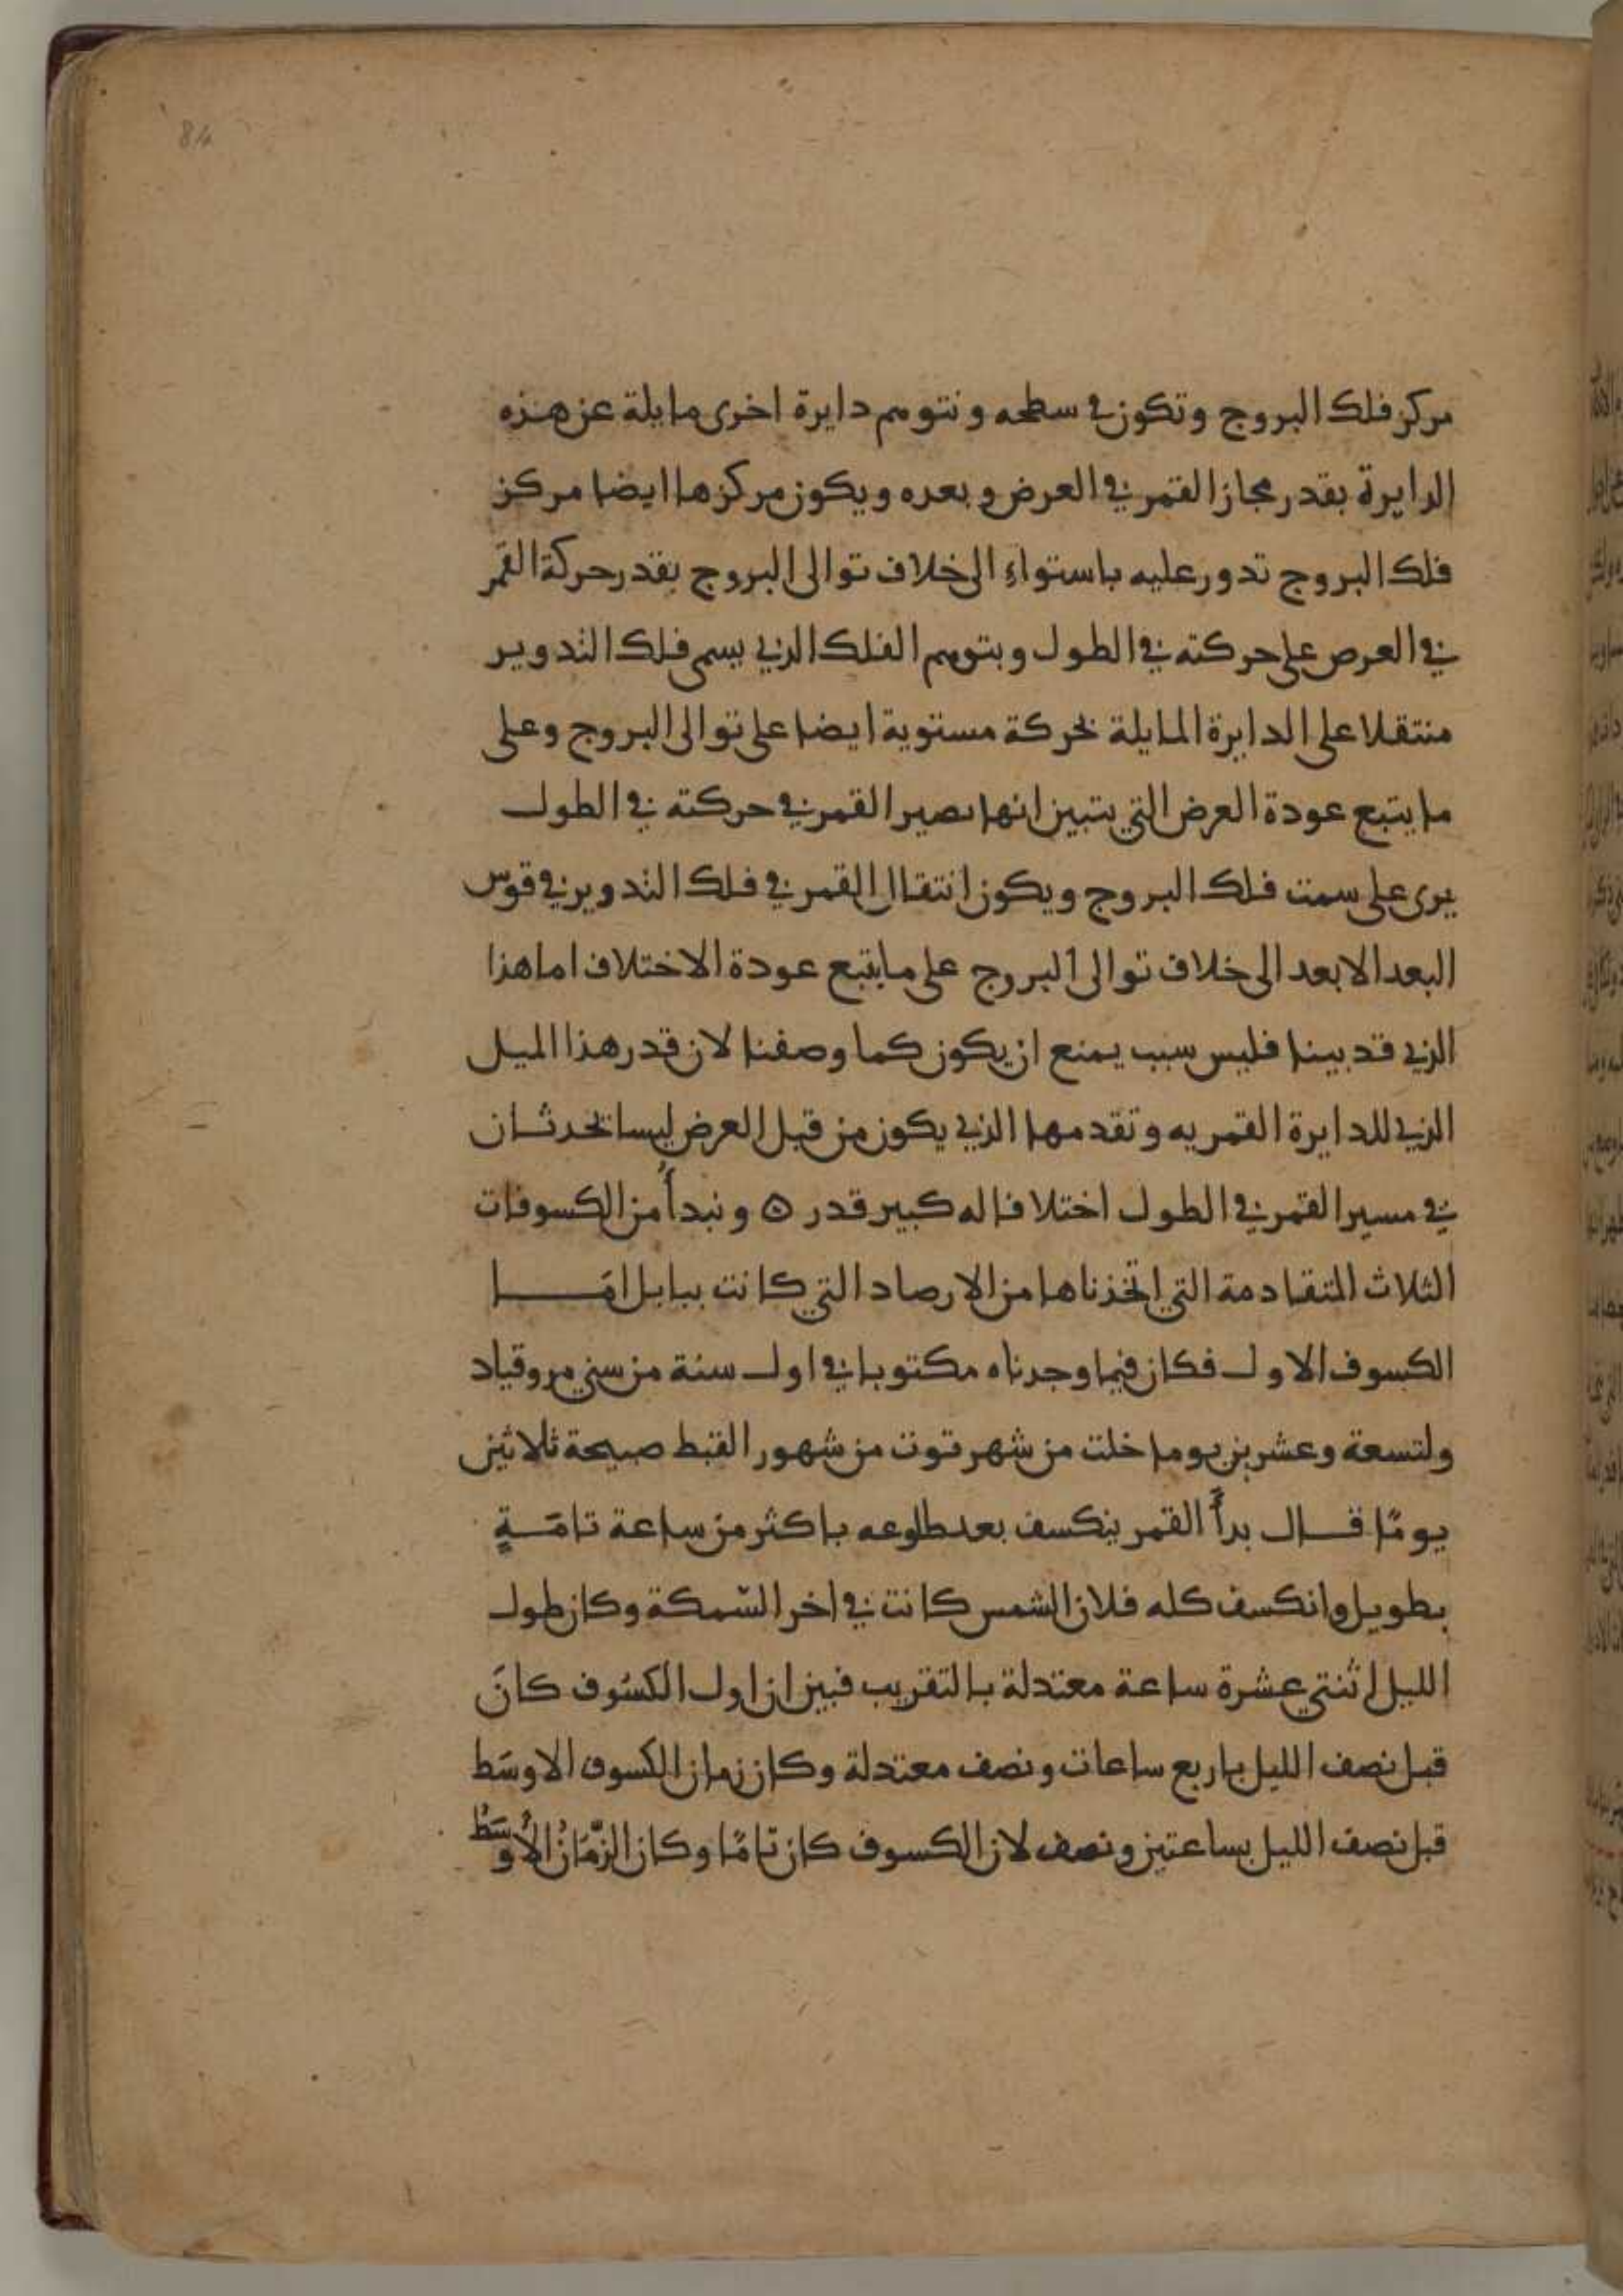 84
مركز فلك البروج وتكون في سطحه ونتوهم دايرة اخرى مايلة عن هذه
الدايرة بقدر مجاز القمر في العرض وبعده ويكون مركزها ايضا مركز
فلك البروج تدور عليه باستواء الى خلاف توالى البروج بقدر حركة القمر
في العرض على حركته في الطول وبتوهم الفلك الذي يسمى فلك التدوير
منتقلا على الدايرة المايلة بحركة مستوية ايضا على توالى البروج وعلى
ما يتبع عودة العرض التي يتبين انها بصير القمر في حركته في الطول
يرى على سمت فلك البروج ويكون انتقال القمر في فلك التدوير في قوس
البعد الابعد الى خلاف توالى البروج على ما يتبع عودة الاختلاف اما هذا
الذي قد بينا فليس سبب يمنع ان يكون كما وصفنا لان قدر هذا الميل
الذي للدايرة القمريه وتقدمها الذي يكون من قبل العرض ليسا يحدثان
في مسير القمر في الطول اختلافا له كبير قدر ۞ ونبدأ من الكسوفات
الثلاث المتقادمة التي اتخذناها من الارصاد التي كانت ببابل امَّا
الكسوف الاول فكان فيما وجدناه مكتوبا في اول سنة من سني مروقياد
ولتسعة وعشرين يوما خلت من شهر توت من شهور القبط صبيحة ثلاثين
يومًا قال بدأَ القمر ينكسف بعد طلوعه باكثر من ساعة تامَّةٍ
بطويل وانكسف كله فلان الشمس كانت في اخر السّمكة وكان طول
الليل اثنتي عشرة ساعة معتدلة بالتقريب فبين ان اول الكسُوف كانَ
قبل نصف الليل باربع ساعات ونصف معتدلة وكان زمان الكسوف الاوسَط
قبل نصف الليل بساعتين ونصف لان الكسوف كان تامًا وكان الزَّمَانُ الأَوسَطُ